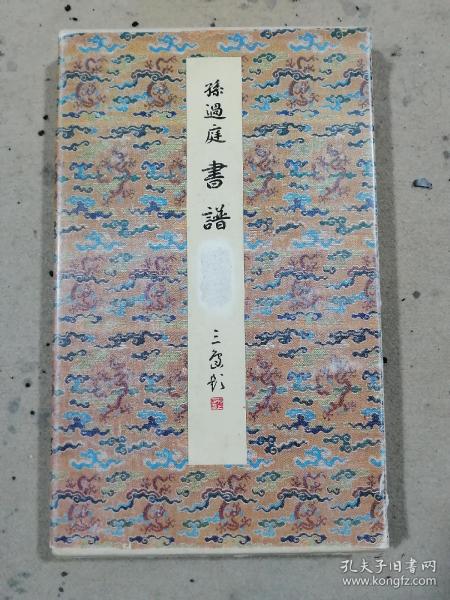 孫過庭 書譜
孔夫子旧书网
www.kongfz.com